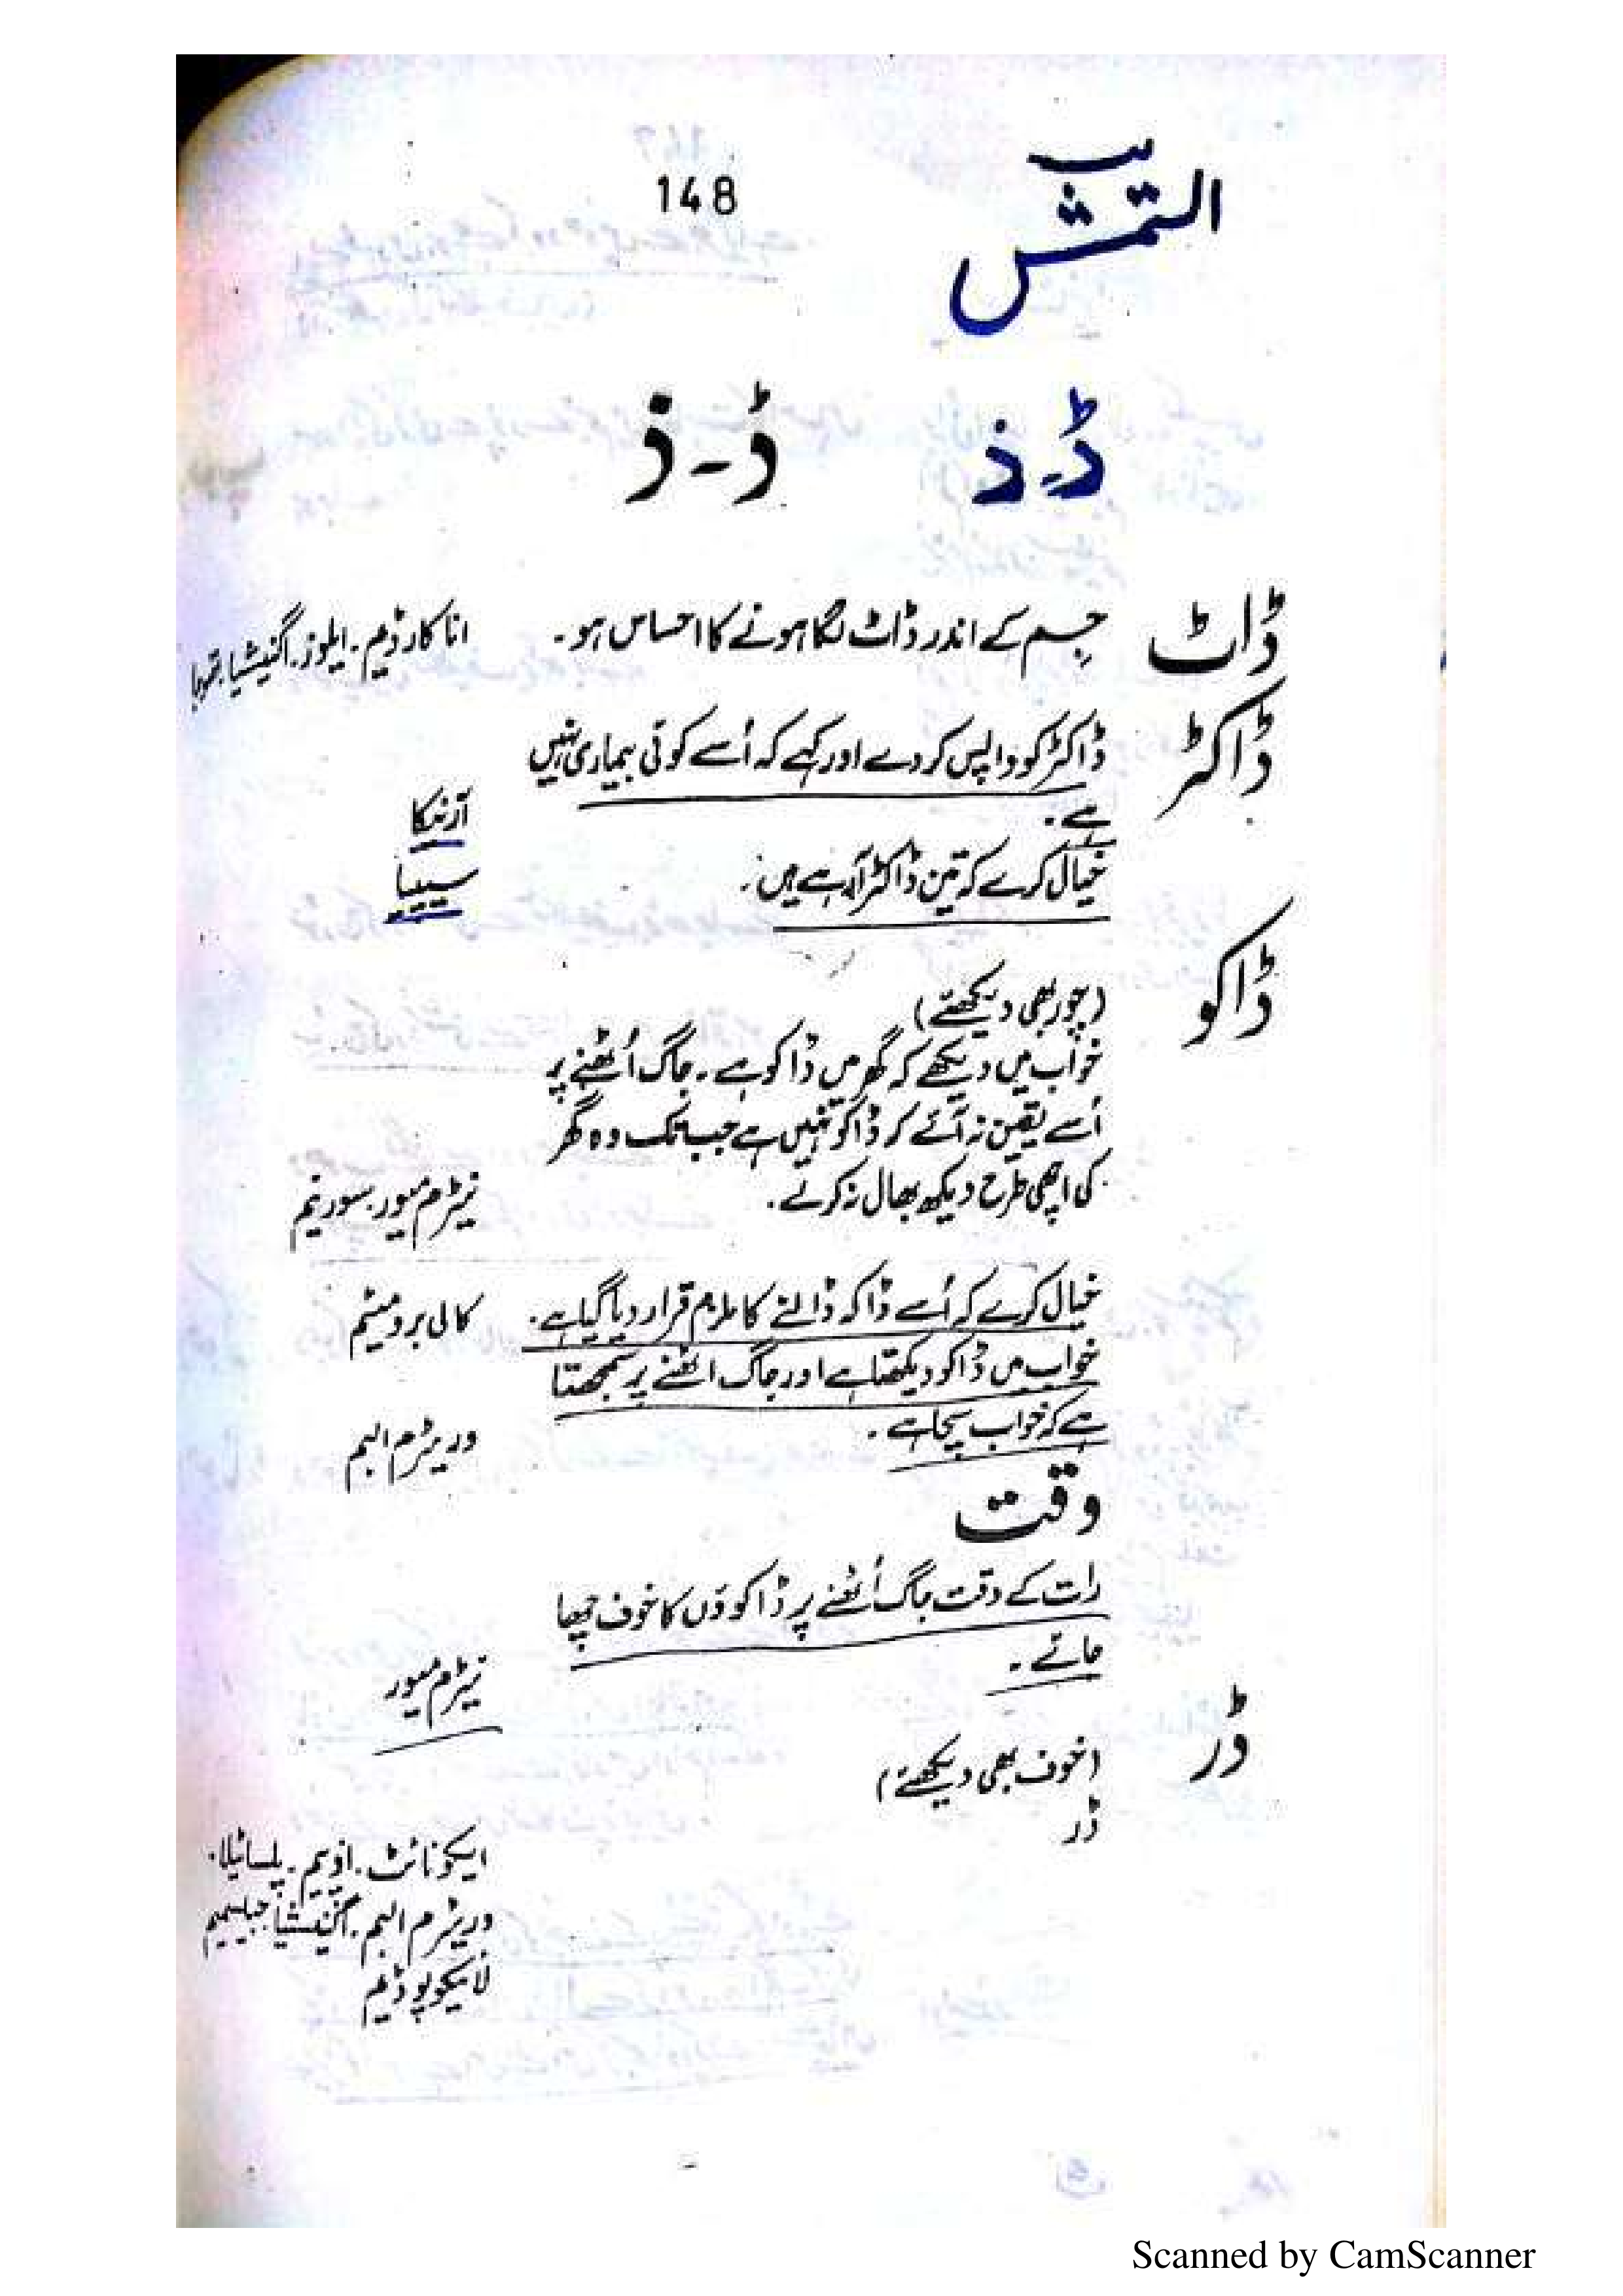 148
التمش
ڈ-ذ ڈ-ذ
ڈاٹ جسم کے اندر ڈاٹ لگا ہونے کا احساس ہو۔ اناکارڈیم۔ ایلوز۔ اگنیشیا۔ تھوجا
ڈاکٹر ڈاکٹر کو واپس کر دے اور کہے کہ اُسے کوئی بیماری نہیں
ہے۔ آرنیکا
خیال کرے کہ تین ڈاکٹر آ رہے ہیں۔ سیپیا
ڈاکو (چور بھی دیکھئے)
خواب میں دیکھے کہ گھر میں ڈاکو ہے۔ جاگ اُٹھنے پر
اُسے یقین نہ آئے کہ ڈاکو نہیں ہے جب تک وہ گھر
کی اچھی طرح دیکھ بھال نہ کرلے۔ نیٹرم میور۔ سورینم
خیال کرے کہ اُسے ڈاکہ ڈالنے کا ملزم قرار دیا گیا ہے۔ کالی برومیٹم
خواب میں ڈاکو دیکھتا ہے اور جاگ اٹھنے پر سمجھتا
ہے کہ خواب سچا ہے۔ وریٹرم البم
وقت
رات کے وقت جاگ اُٹھنے پر ڈاکوؤں کا خوف چھا
جائے۔ نیٹرم میور
ڈر (خوف بھی دیکھئے)
ڈر
ایکونائٹ۔ اوپیم۔ پلساٹیلا۔
وریٹرم البم۔ اگنیشیا۔ جیلسیمیم
لائیکوپوڈیم
Scanned by CamScanner